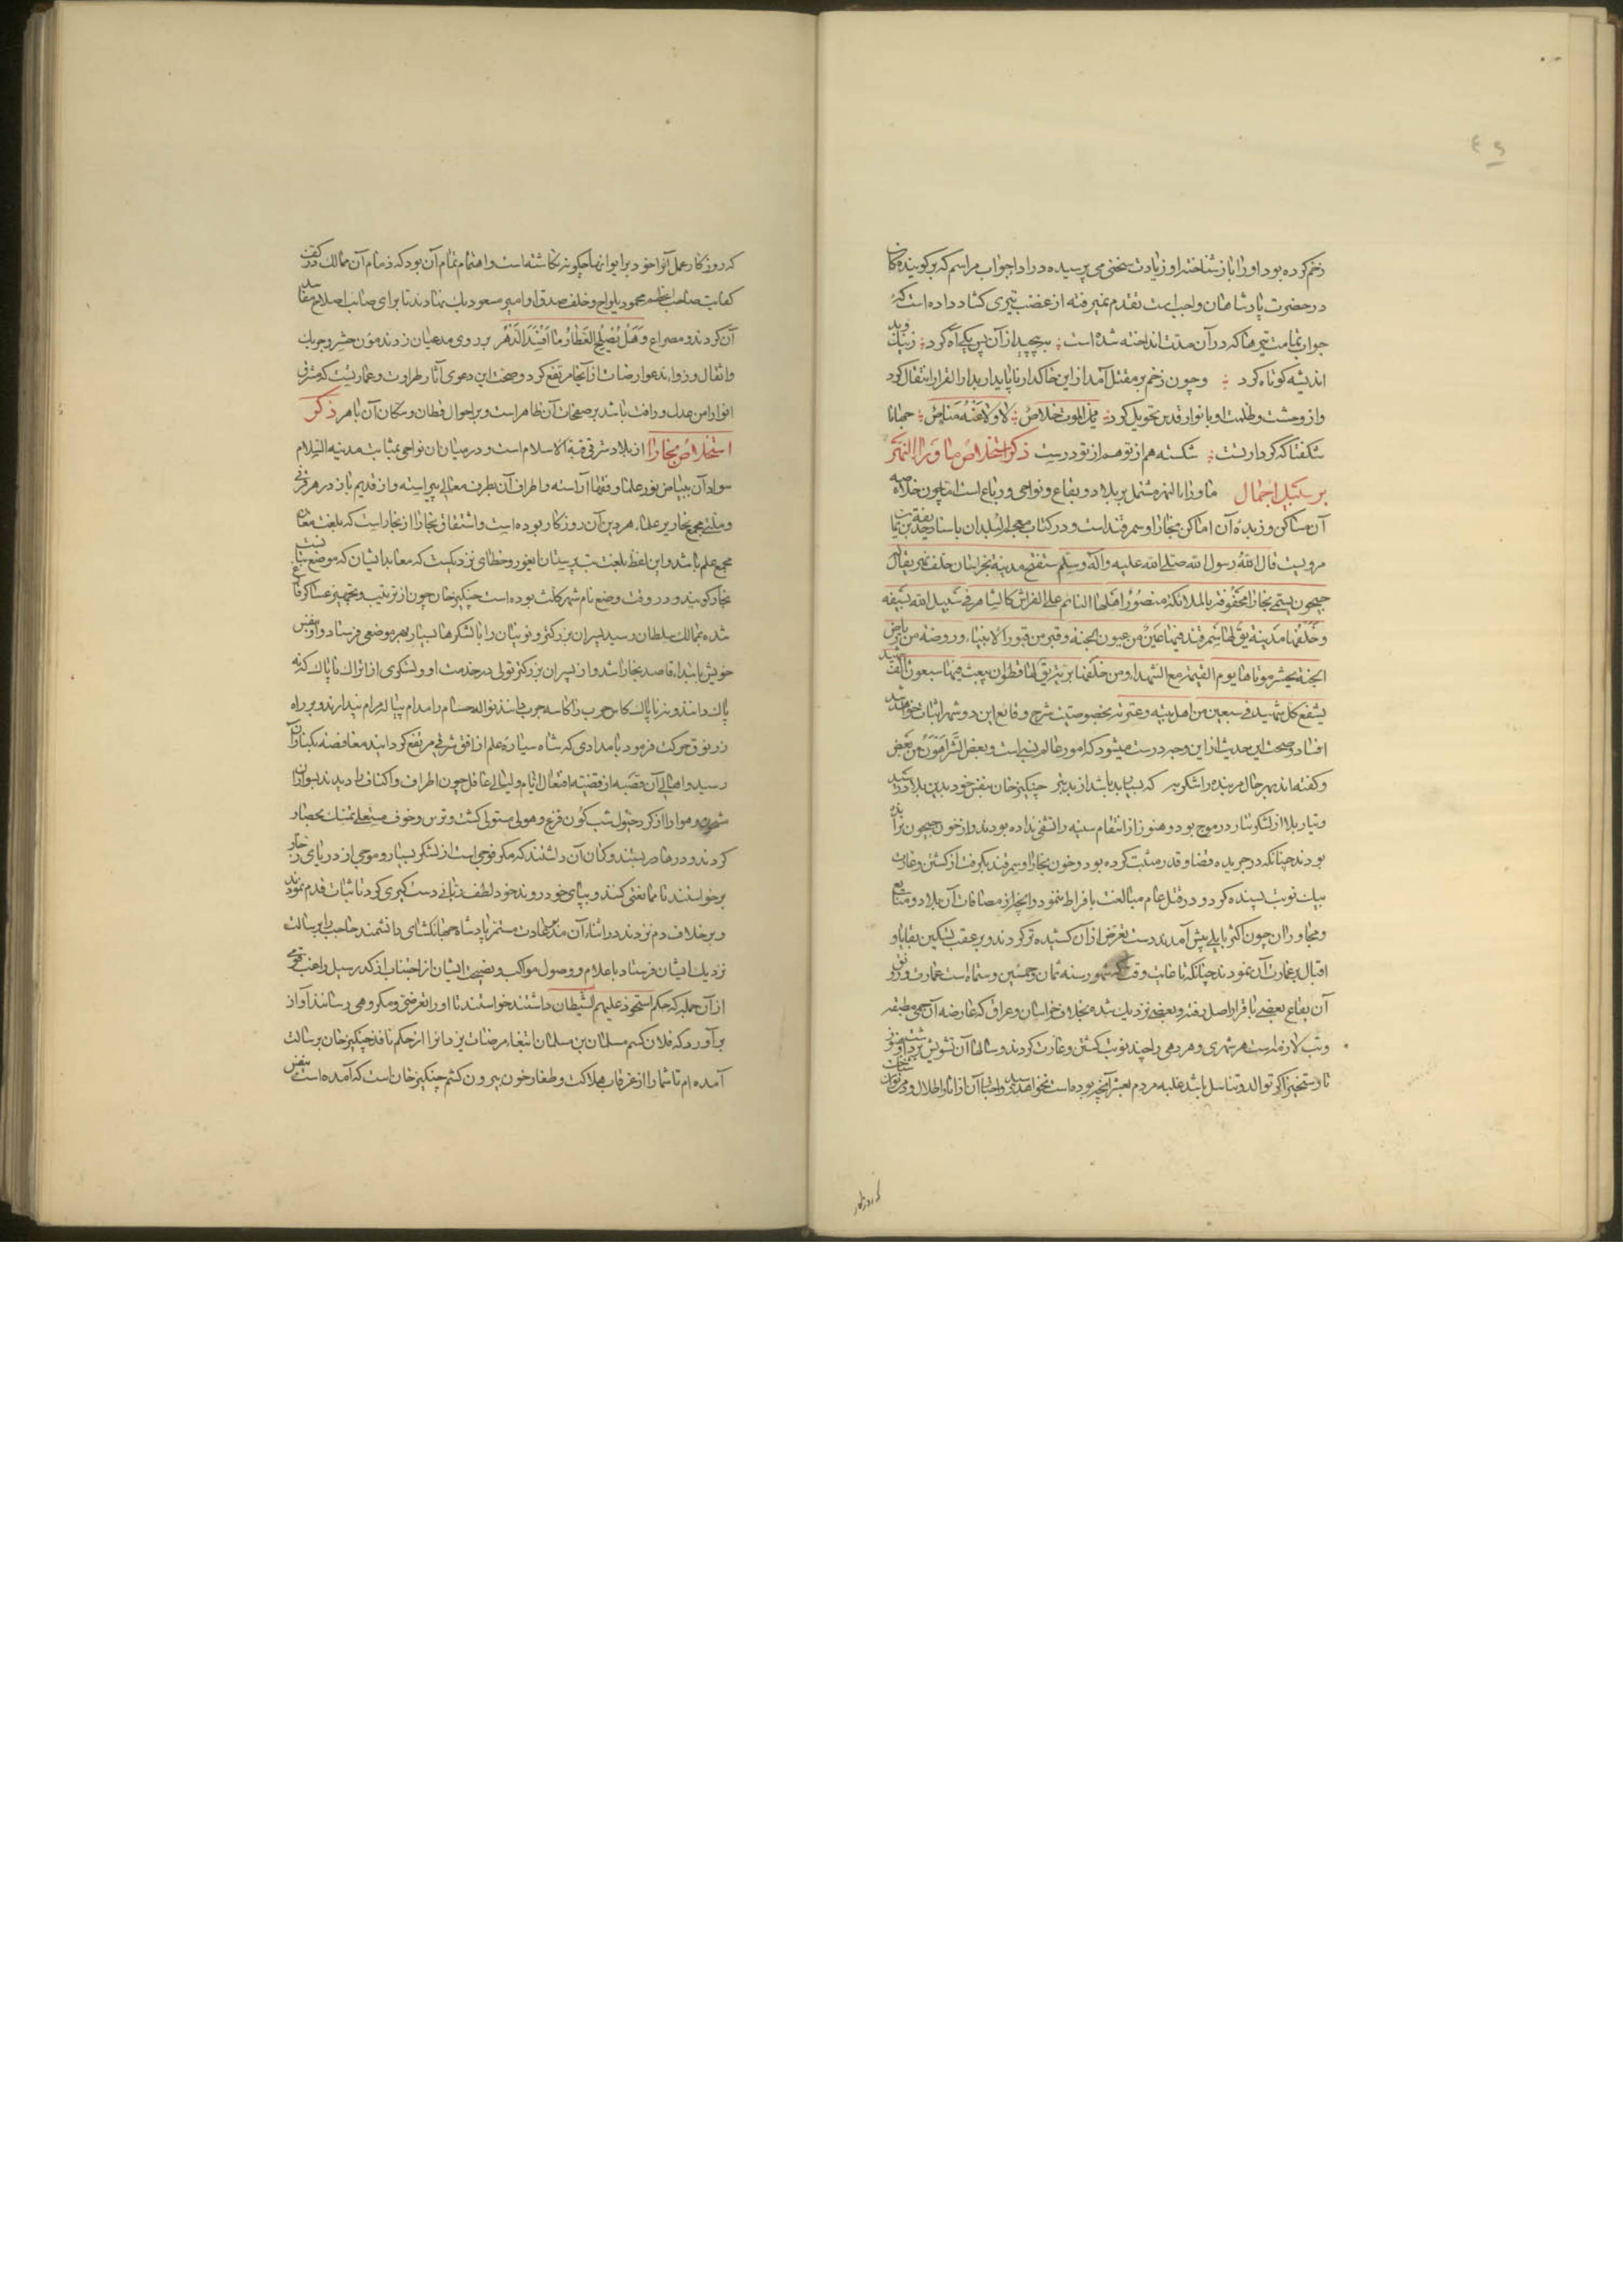 ٤٩
زخم کرده بود او را باز شناخته او زیادت سخنی می پرسیده در ادا جواب مراسم که بر گوینده کان
در حضرت پادشاهان واجب است تقدیم نمیرفته از غضب تیری گشاد داده است که
جواب تمامت تیرهاکه در آن مدت انداخته شده است بپیچید از آن پس یکی آه کرد ز نیک و بد
اندیشه کوتاه کرد وچون زخم بر مقتل آمد از این خاکدار ناپایدار بدار القرار انتقال کرد
واز وحشت وظلمت او با نوار قدس تحویل کرد من الموت خلاص لا ولا عنه مناص جهانا
شگفتا که کردار تست شکسته هم از تو هم از تو درست ذکر استخلاص ماوراء النهر
بر سبیل اجمال ماوراء النهر مشتمل بر بلاد و بقاع و نواحی و رباع است اما چون خلاصه
آن مساکن و زبده آن اماکن بخارا وسمرقند است و در کتاب معجم البلدان باسناد حذیفة بن یمان
مرویست قال الله رسول الله صلی الله علیه وآله وسلم ستفتح مدینة بخراسان خلف نهر یقال
جیحون یسمی بخارا محفوفة بالملائکة منصور اهلها النائم علی الفراش کالشاهر فی سبیل الله بسیفه
وخلفها مدینة یق لها سمرقند فیها عین من عیون الجنة وقبر من قبور الانبیاء وروضة من ریاض
الجنة یحشر موتاها یوم القیمة مع الشهداء ومن خلفها تربة یق لها قطوان یبعث منها سبعون الف شهید
یشفع کل شهید فی سبعین من اهل بیته وعترته بخصوصیت شرح وقایع این دو شهر اثبات خواهد شد
افتاد وصحت این حدیث از این وجه درست میشود که امور عالم نسبی است وبعض الشر اهون من بعض
وگفته اند بهر حال مر بنده را شکر به که بسیار بد باشد از بد بتر چنگیز خان بنفس خود بدین بلاد رسید
وتیار بلا از لشکر تتار در موج بود وهنوز از انتقام سینه را تشفی نداده بودند واز خون جیحون نرانده
بودند چنانکه در جریده قضا و قدر مثبت کرده بود وخون بخارا وسمرقند بگرفت از کشتن وغارت
بیک نوبت بسنده کرد و در قتل عام مبالغت بافراط ننمود وآنچ از مضافات آن بلاد ومتابع
ومجاور آن چون اکثر بایلی پیش آمدند دست تعرض از آن کشیده تر کردند وبر عقب تسکین بقایا و
اقبال بر عمارت آن نمودند چنانکه تا غایت وقت که شهور سنه ثمان وخمسین وستمائه است عمارت و رونق
آن بقاع بعضی با قرار اصل رفته وبعضی نزدیک شده بخلاف خراسان وعراق که عارضه آن حمی مطبقه
وتب لازمه است هر شهری و هر دهی را چند نوبت کشتن وغارت کردند وسالها آن تشویش برداشت و هنوز
تا رستخیز اگر توالد وتناسل باشد غلبه مردم بعشر آنچ بوده است نخواهد رسید واخبار آن از آثار اطلال ودمن توان شناخت
که روزکار
که روزکار عمل آنرا خود بر ایوانها چگونه نگاشته است واهتمام تمام آن بود که زمام آن ممالک در کف
کفایت صاحب اعظم محمود یلواج وخلف صدق او امیر مسعود بیک نهادند تا برای صائب اصلاح مفاسد
آن کردند ومصراع وهل یصلح العطار ما افسد الدهر بر روی مدعیان زدند مؤن حشر وچریک
واثقال و زواید عوارضات از آنجا مرتفع کرد وصحت این دعوی آثار طراوت وعمارتیست که مشرق
انوار امن عدل و رافت باشد بر صفحات آن ظاهر است وبر احوال قطان وسکان آن باهر ذکر
استخلاص بخارا از بلاد شرقی قبة الاسلام است ودر میان آن نواحی بمثابت مدینة السلام
سواد آن ببیاض نور علما وفقها آراسته واطراف آن بطرف معالی پیراسته واز قدیم باز در هر قرنی
وملتی مجمع نحاریر علماء هر دین آن روزکار بوده است واشتقاق بخارا از بخار است که بلغت مغان
مجمع علم باشد واین لفظ بلغت بت پرستان ایغور وخطای نزدیکیست که معابد ایشان که موضع بتان است
بخار گویند ودر وقت وضع نام شهر کلث بوده است چنگیز خان چون از ترتیب وتجهیز عساکر فارغ
شده بممالک سلطان رسید پسران بزرگتر ونوینان را با لشکرها بسیار بهر موضعی فرستاد واو بنفس
خویش بابتداء قاصد بخارا شد واز پسران بزرگتر تولی در خدمت او ولشکری از اتراک ناپاک که نه
پاک دانند ونه ناپاک کاس حرب را کاسه چرب دانند نواله حسام را مدام پیاله مدام پندارند وبر راه
زرنوق حرکت فرمود بامدادی که شاه سیاره علم از افق شرقی مرتفع کردانید مغافصة بکنار آن
رسید واهالی آن قصبه از قضیه افتعال ایام ولیالی غافل چون اطراف واکناف را دیدند بسواران
مشحون وهوا را از کرد خیول شب گون فزع وهول مستولی گشت وترس وخوف مستعلی تمسک بحصار
کردند ودرها در بستند وگمان آن داشتند که مگر فوجی است از لشکر بسیار وموجی از دریای زخار
برخواستند تا ممانعتی کنند وبپای خود روند خود لطف ربانی دست گیری کرد تا ثبات قدم نمودند
وبرخلاف دم نزدند در اثناء آن مدبر عادت مستمر پادشاه جهانگشای دانشمند حاجب را برسالت
نزدیک ایشان فرستاد باعلام و وصول مواکب ونصیحت ایشان از اجتناب از گذر سیل راعب قومی
از آن جمله که حکم استحوذ علیهم الشیطان داشتند خواستند تا او را تعرضی ومکروهی رسانند آواز
برآورد که فلان کسم مسلمان بن مسلمان ابتغاء مرضات یزدانرا از حکم نافذ چنگیز خان برسالت
آمده ام تا شما را از غرقاب هلاکت وطغار خون بیرون کشم چنگیز خان است که آمده است بنفس